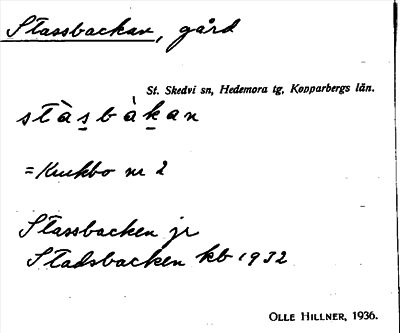 Stassbackan, gård
St. Skedvi sn, Hedemora tg, Kopparbergs län.
stàs̲bàk̲an
= Kuckbo nr 2
Stassbacken jr
Stadsbacken kb 1932
OLLE HILLNER, 1936.